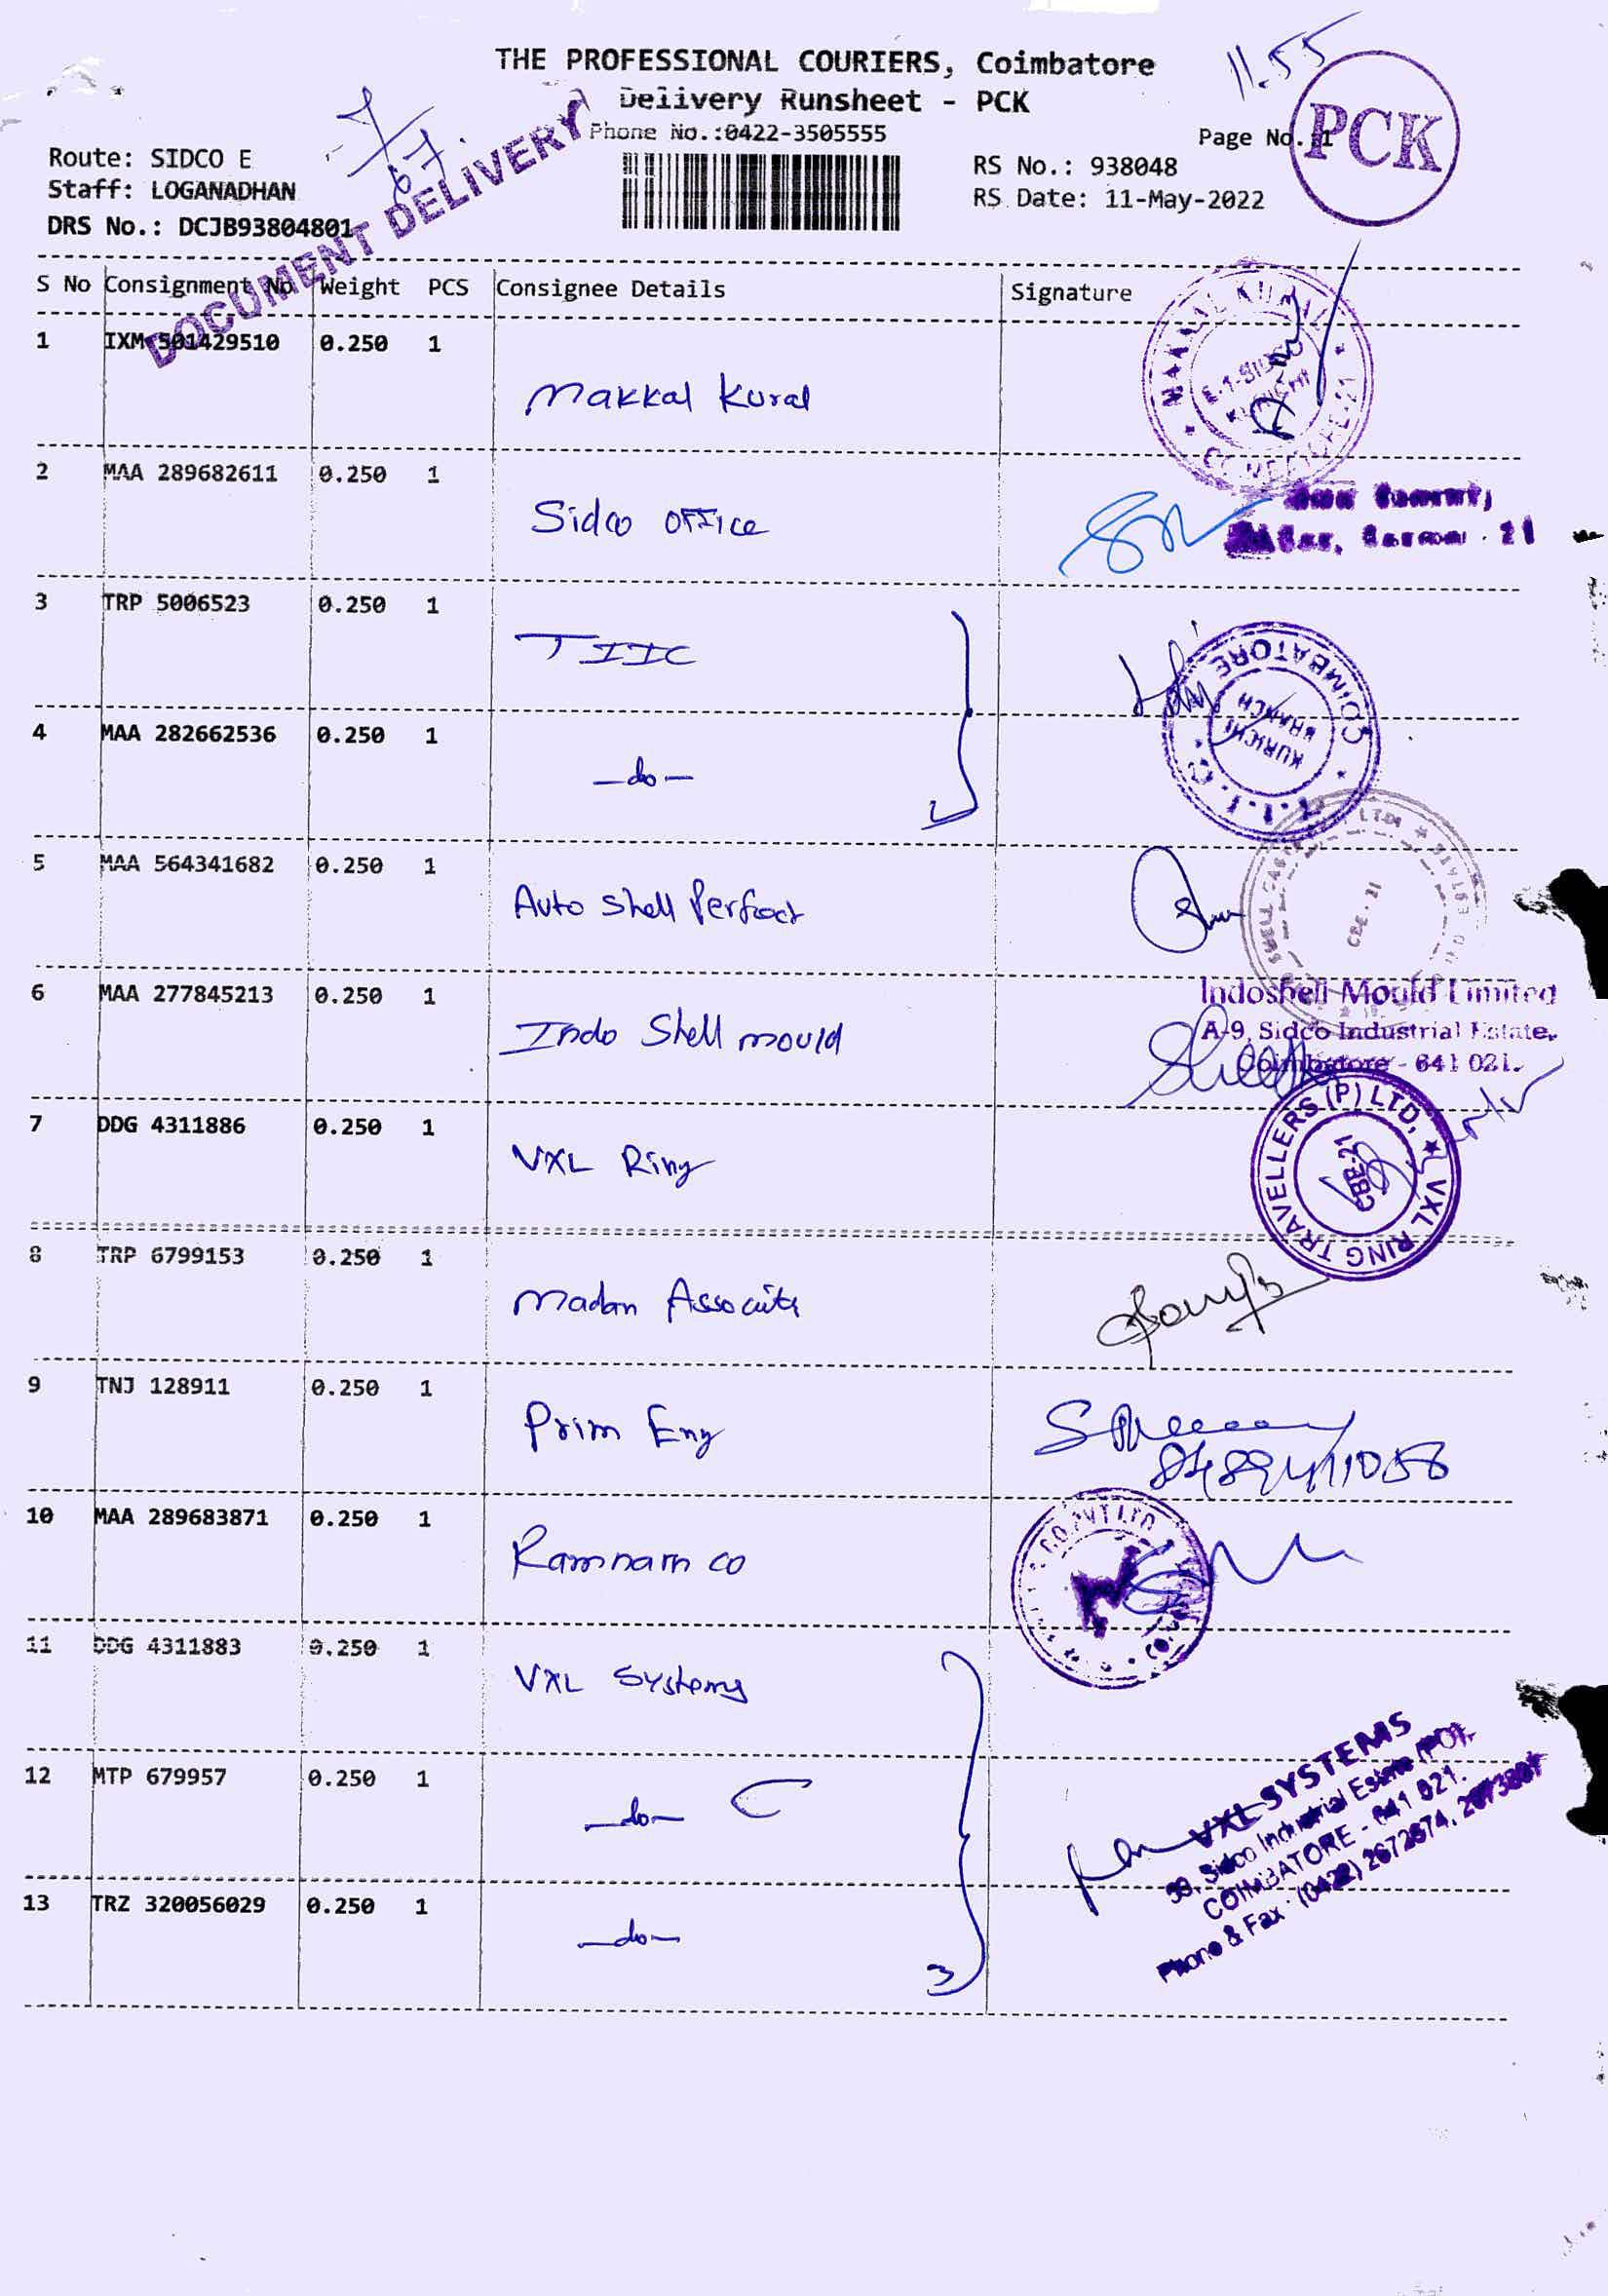 THE PROFESSIONAL COURIERS, Coimbatore
11.55
Delivery Runsheet - PCK
PCK
Phone No.:0422-3505555
Page No.:1
Route: SIDCO E
RS No.: 938048
Staff: LOGANADHAN
RS Date: 11-May-2022
DRS No.: DCJB93804801
DOCUMENT DELIVERY
S No Consignment No Weight PCS Consignee Details Signature
1 IXM 501429510 0.250 1
Makkal Kural
2 MAA 289682611 0.250 1
Sidco OFFICE
3 TRP 5006523 0.250 1
TIIC
COIMBATORE
KURICHI
BRANCH
T.I.I.C.
4 MAA 282662536 0.250 1
-do-
2
5 MAA 564341682 0.250 1
Auto Shell Perfect
CBE - 21
6 MAA 277845213 0.250 1
Indo Shell mould
Indoshell Mould Limited
A-9, Sidco Industrial Estate,
Coimbatore - 641 021.
7 DDG 4311886 0.250 1
VXL Ring
VXL RING TRAVELLERS (P) LTD,
CBE-21
8 TRP 6799153 0.250 1
Madan Associts
9 TNJ 128911 0.250 1
Prim Eng
10 MAA 289683871 0.250 1
Ramnam co
11 DDG 4311883 0.250 1
VXL Systems
12 MTP 679957 0.250 1
-do-
VXL SYSTEMS
39, Sidco Industrial Estate (PO),
COIMBATORE - 641 021.
Phone & Fax : (0422) 2672674, 2673807
13 TRZ 320056029 0.250 1
-do-
3